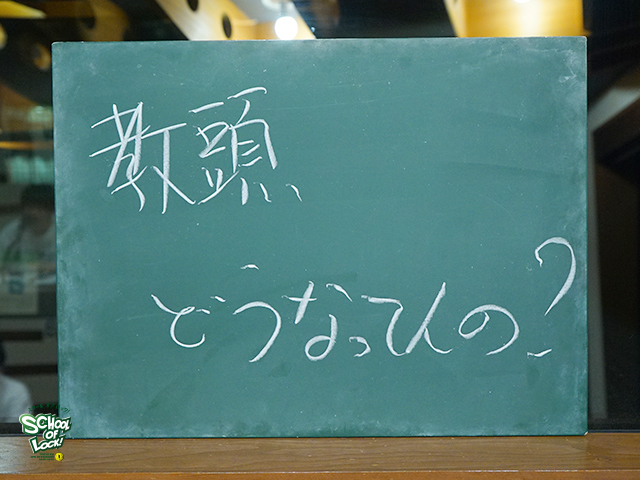 教頭
どうなってんの?
SCHOOL
OF
LOCK!